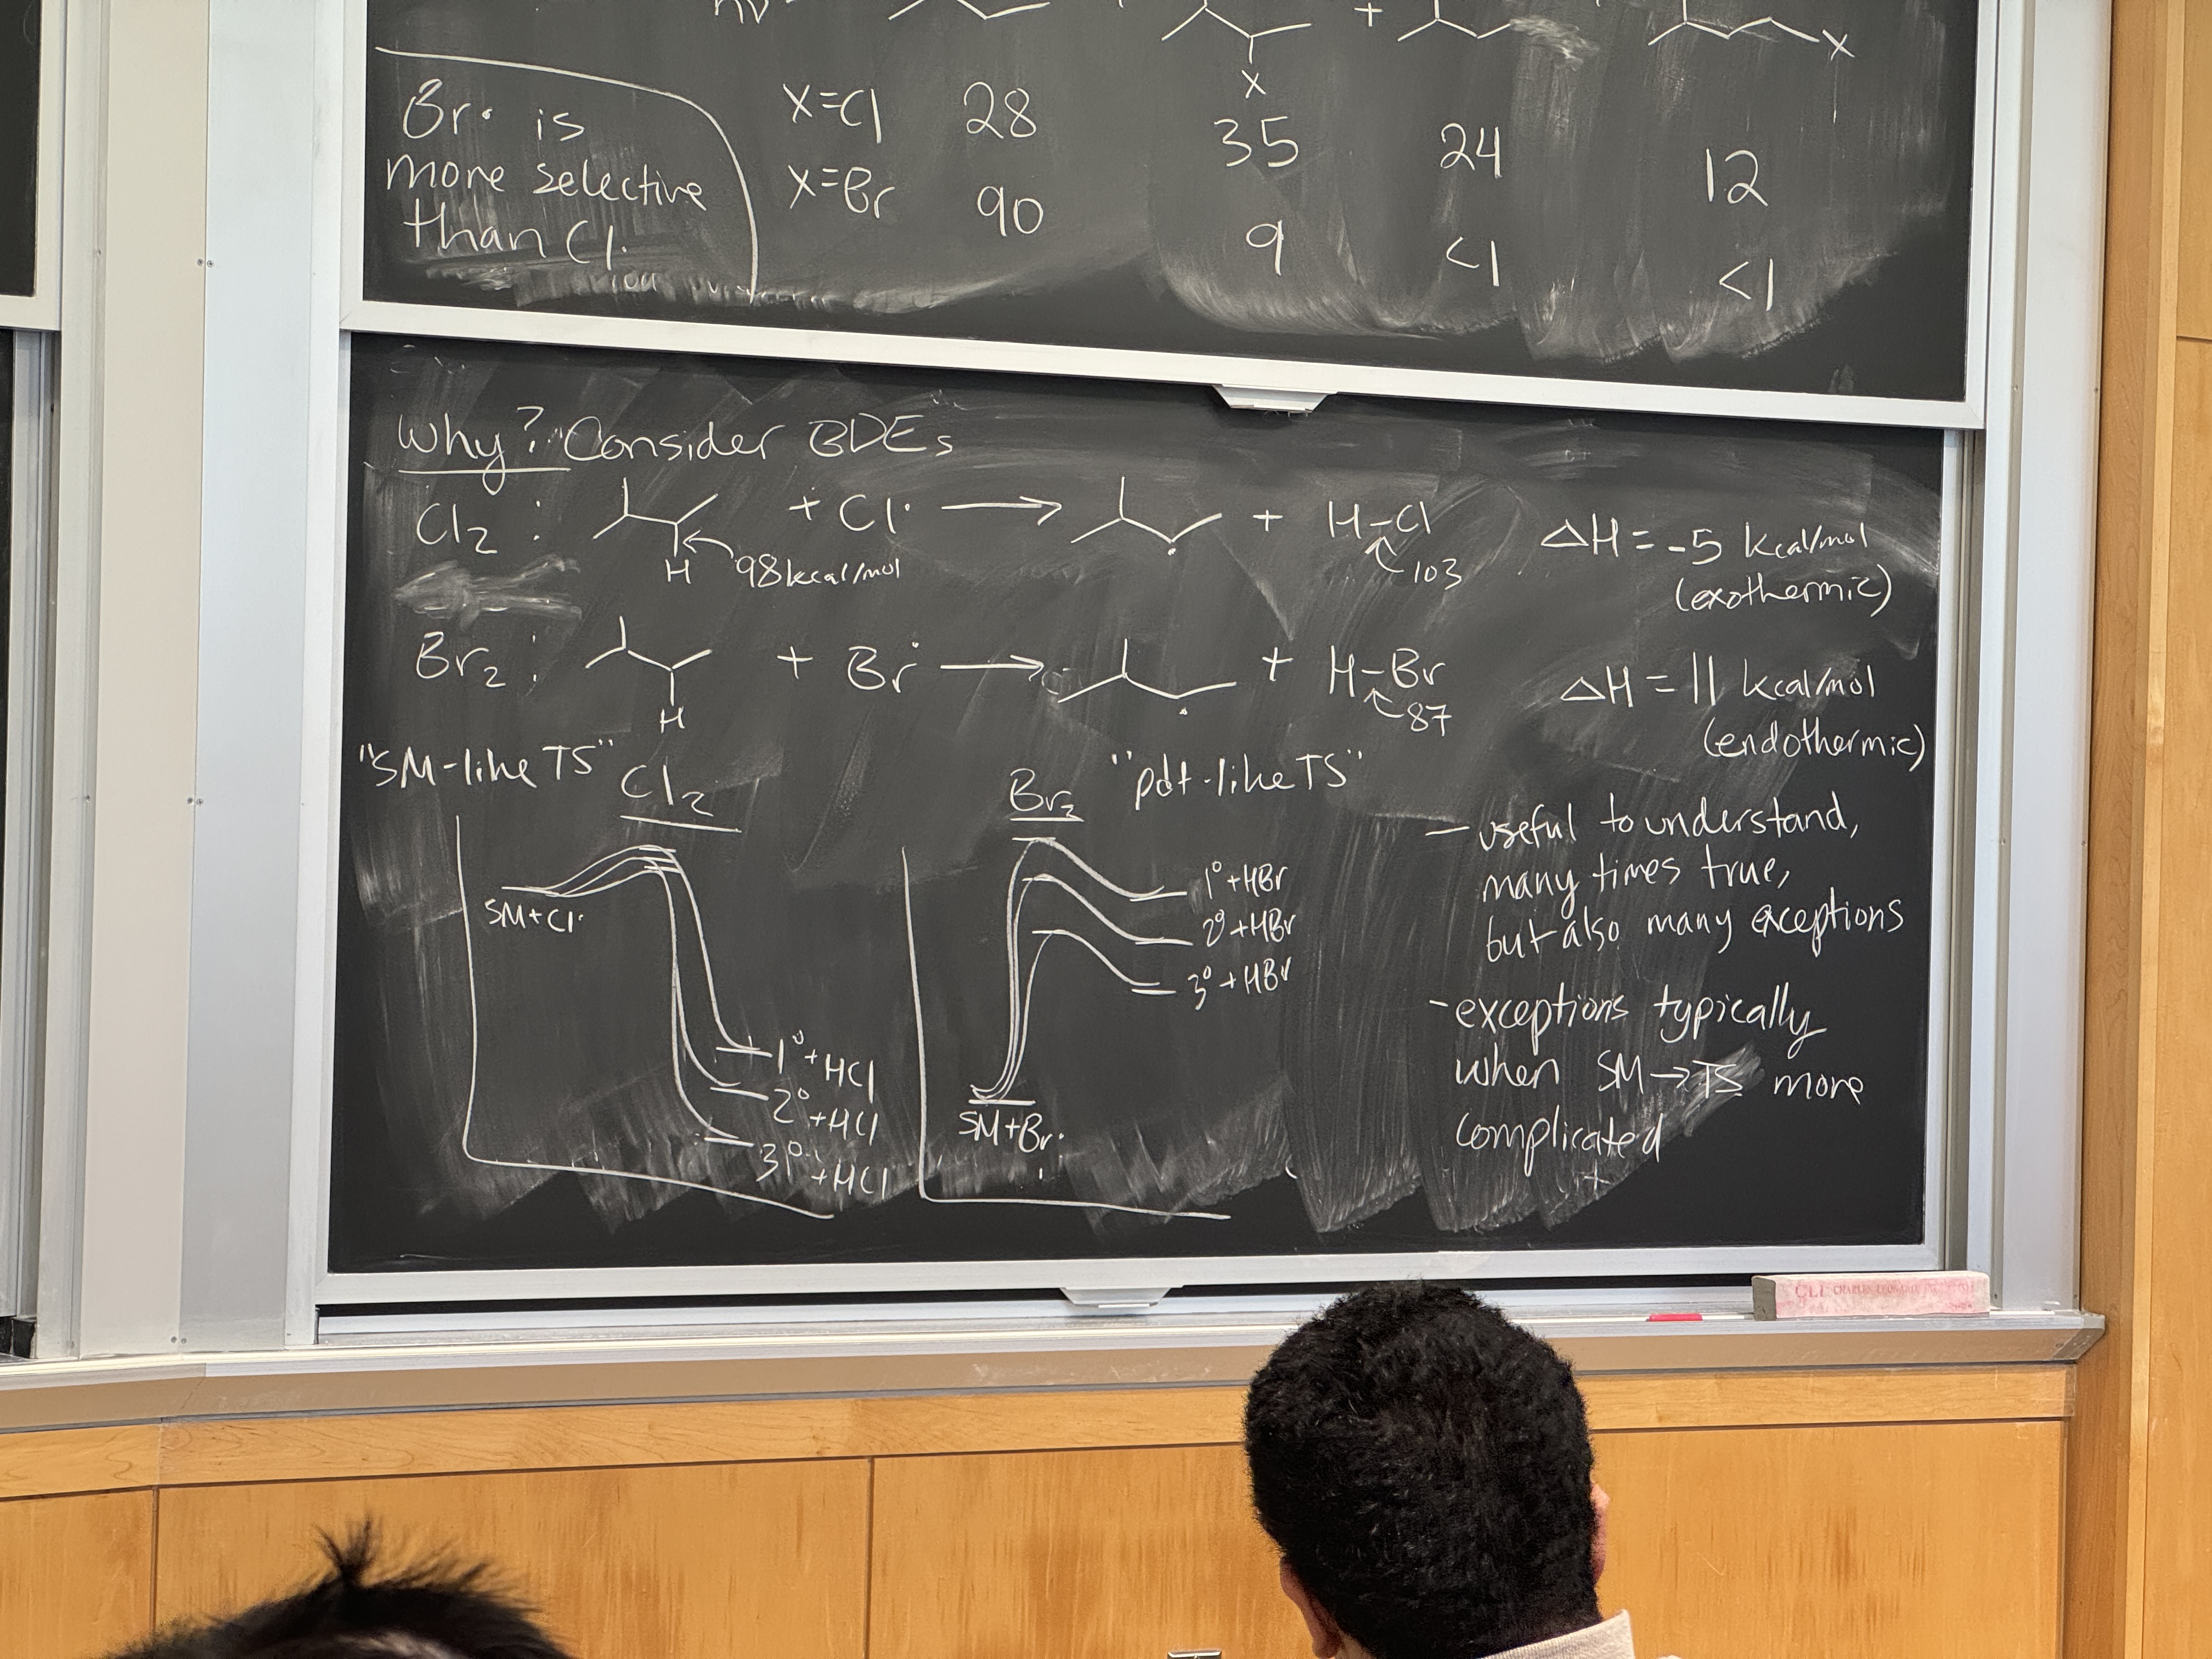 hν
+
X
X
Br· is
more selective
than Cl·
X=Cl 28 35 24 12
X=Br 90 9 <1 <1
Why? Consider BDEs
Cl2 : + Cl· → + H-Cl ΔH = -5 kcal/mol
H 98 kcal/mol 103 (exothermic)
Br2 : + Br· → + H-Br ΔH = 11 kcal/mol
H 87 (endothermic)
"SM-like TS" Cl2
Br2 "pdt-like TS"
SM+Cl·
1°+HCl
2°+HCl
3°+HCl
1°+HBr
2°+HBr
3°+HBr
SM+Br·
- useful to understand,
many times true,
but also many exceptions
- exceptions typically
when SM→TS more
complicated
CLI